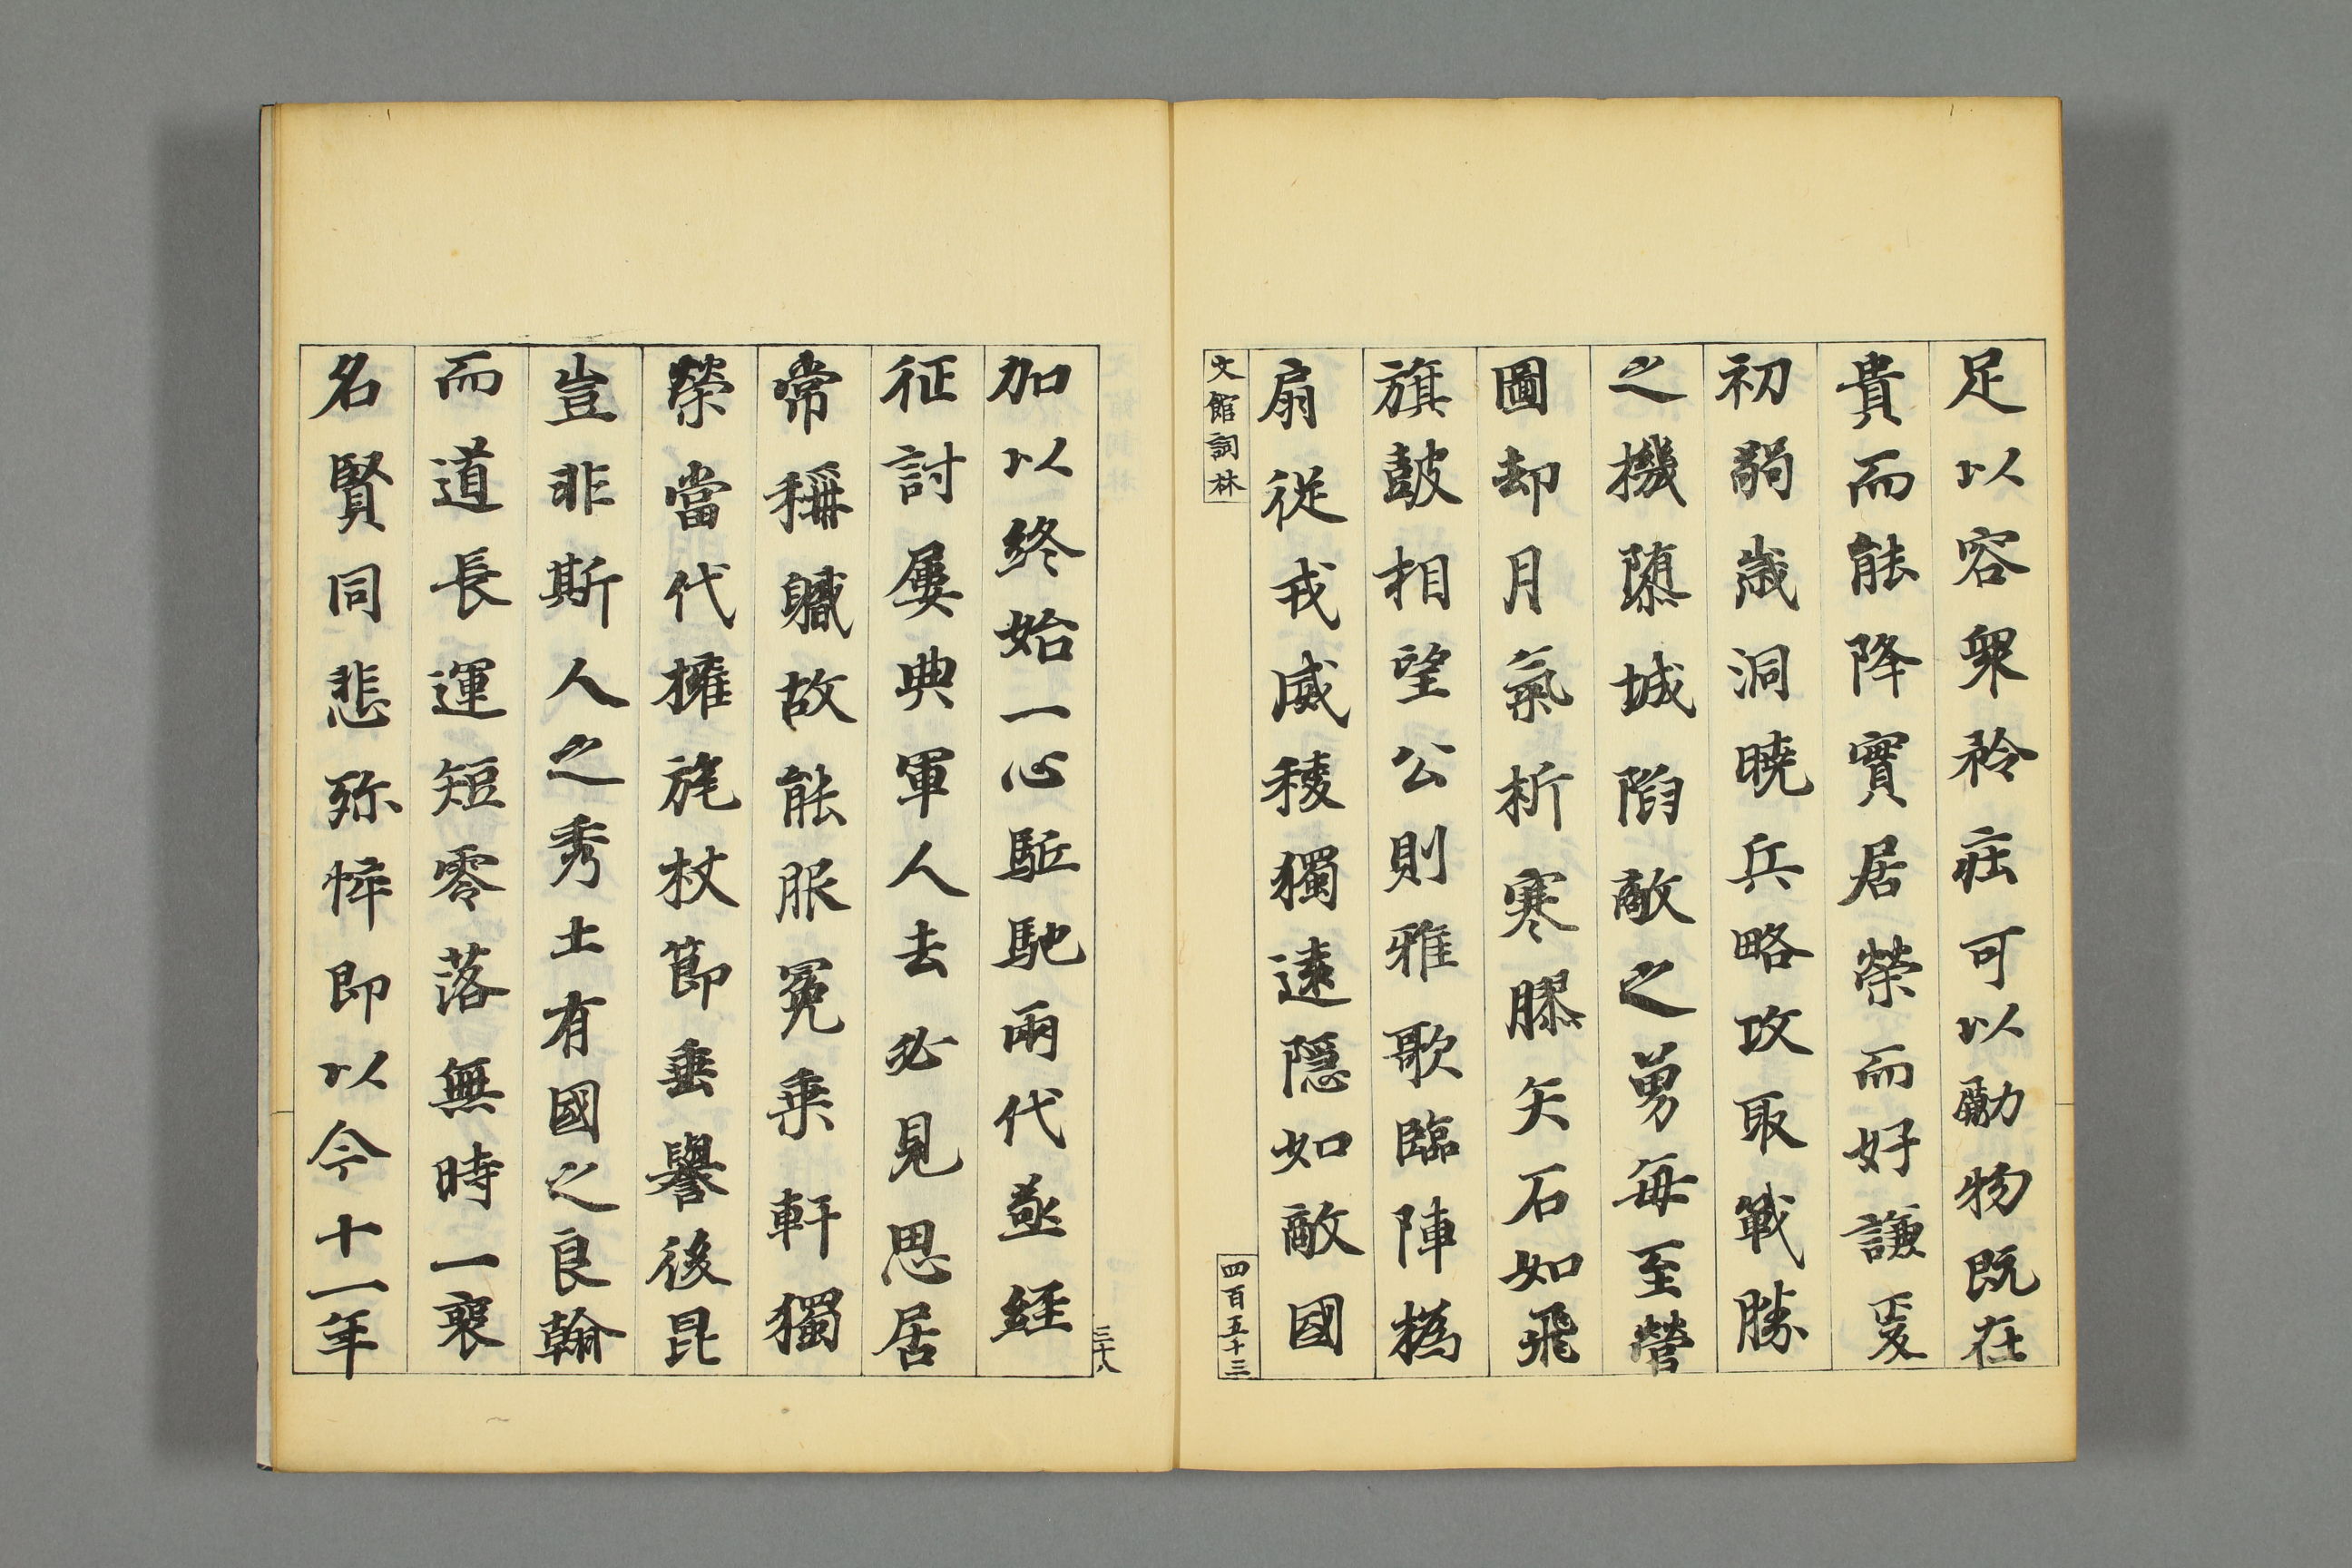 足以容衆矜莊可以勵物既在
貴而能降實居榮而好謙爰
初弱歲洞曉兵略攻取戰勝
之機隳城陷敵之勇每至營
圖却月氣折寒膠矢石如飛
旗鼓相望公則雅歌臨陣撝
扇從戎威稜獨遠隱如敵國
文館詞林
四百五十三
三十八
加以終始一心驅馳兩代亟經
征討屢典軍人去必見思居
常稱職故能服冕乗軒獨
榮當代擁旄杖節垂譽後昆
豈非斯人之秀士有國之良翰
而道長運短零落無時一喪
名賢同悲殄悴即以今十一年